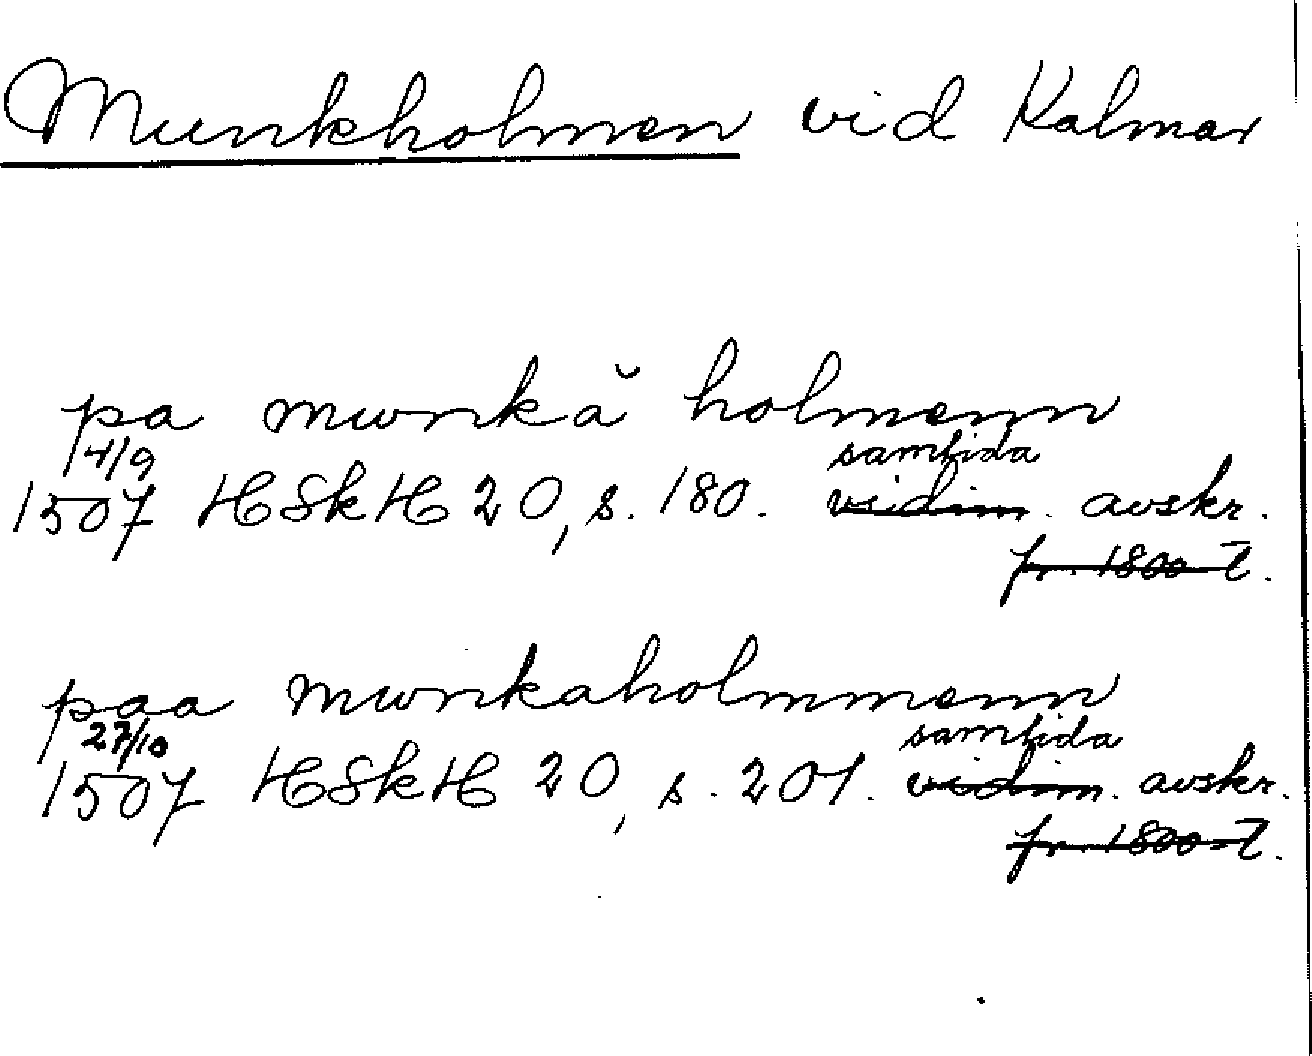 Munkholmen vid Kalmar
pa munkă holmenn
4/9 samtida
1507 HSkH 20, s. 180. vidim. avskr.
fr. 1800-t.
paa munkaholmmenn
27/10 samtida
1507 HSkH 20, s. 201. vidim. avskr.
fr. 1800-t.